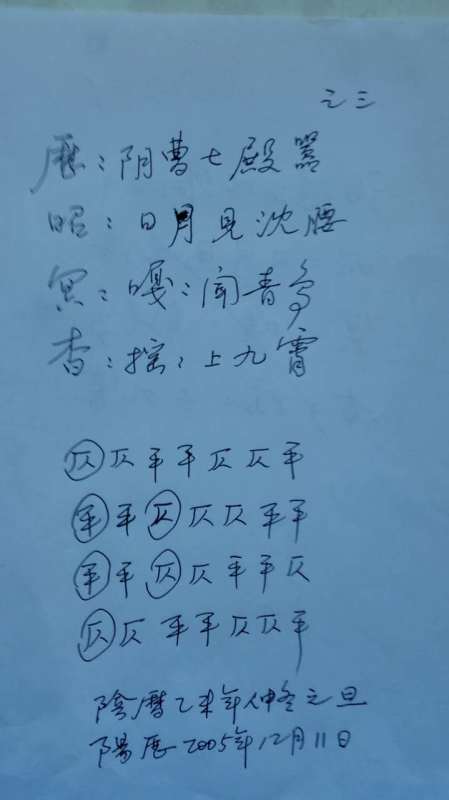 之三
厯：阴曹七殿嚣
昭：日月見沈腰
冥：嘎：闻青鸟
杳：摇：上九霄
仄仄平平仄仄平
平平仄仄仄平平
平平仄仄平平仄
仄仄平平仄仄平
陰曆乙未年仲冬元旦
陽历2005年12月11日